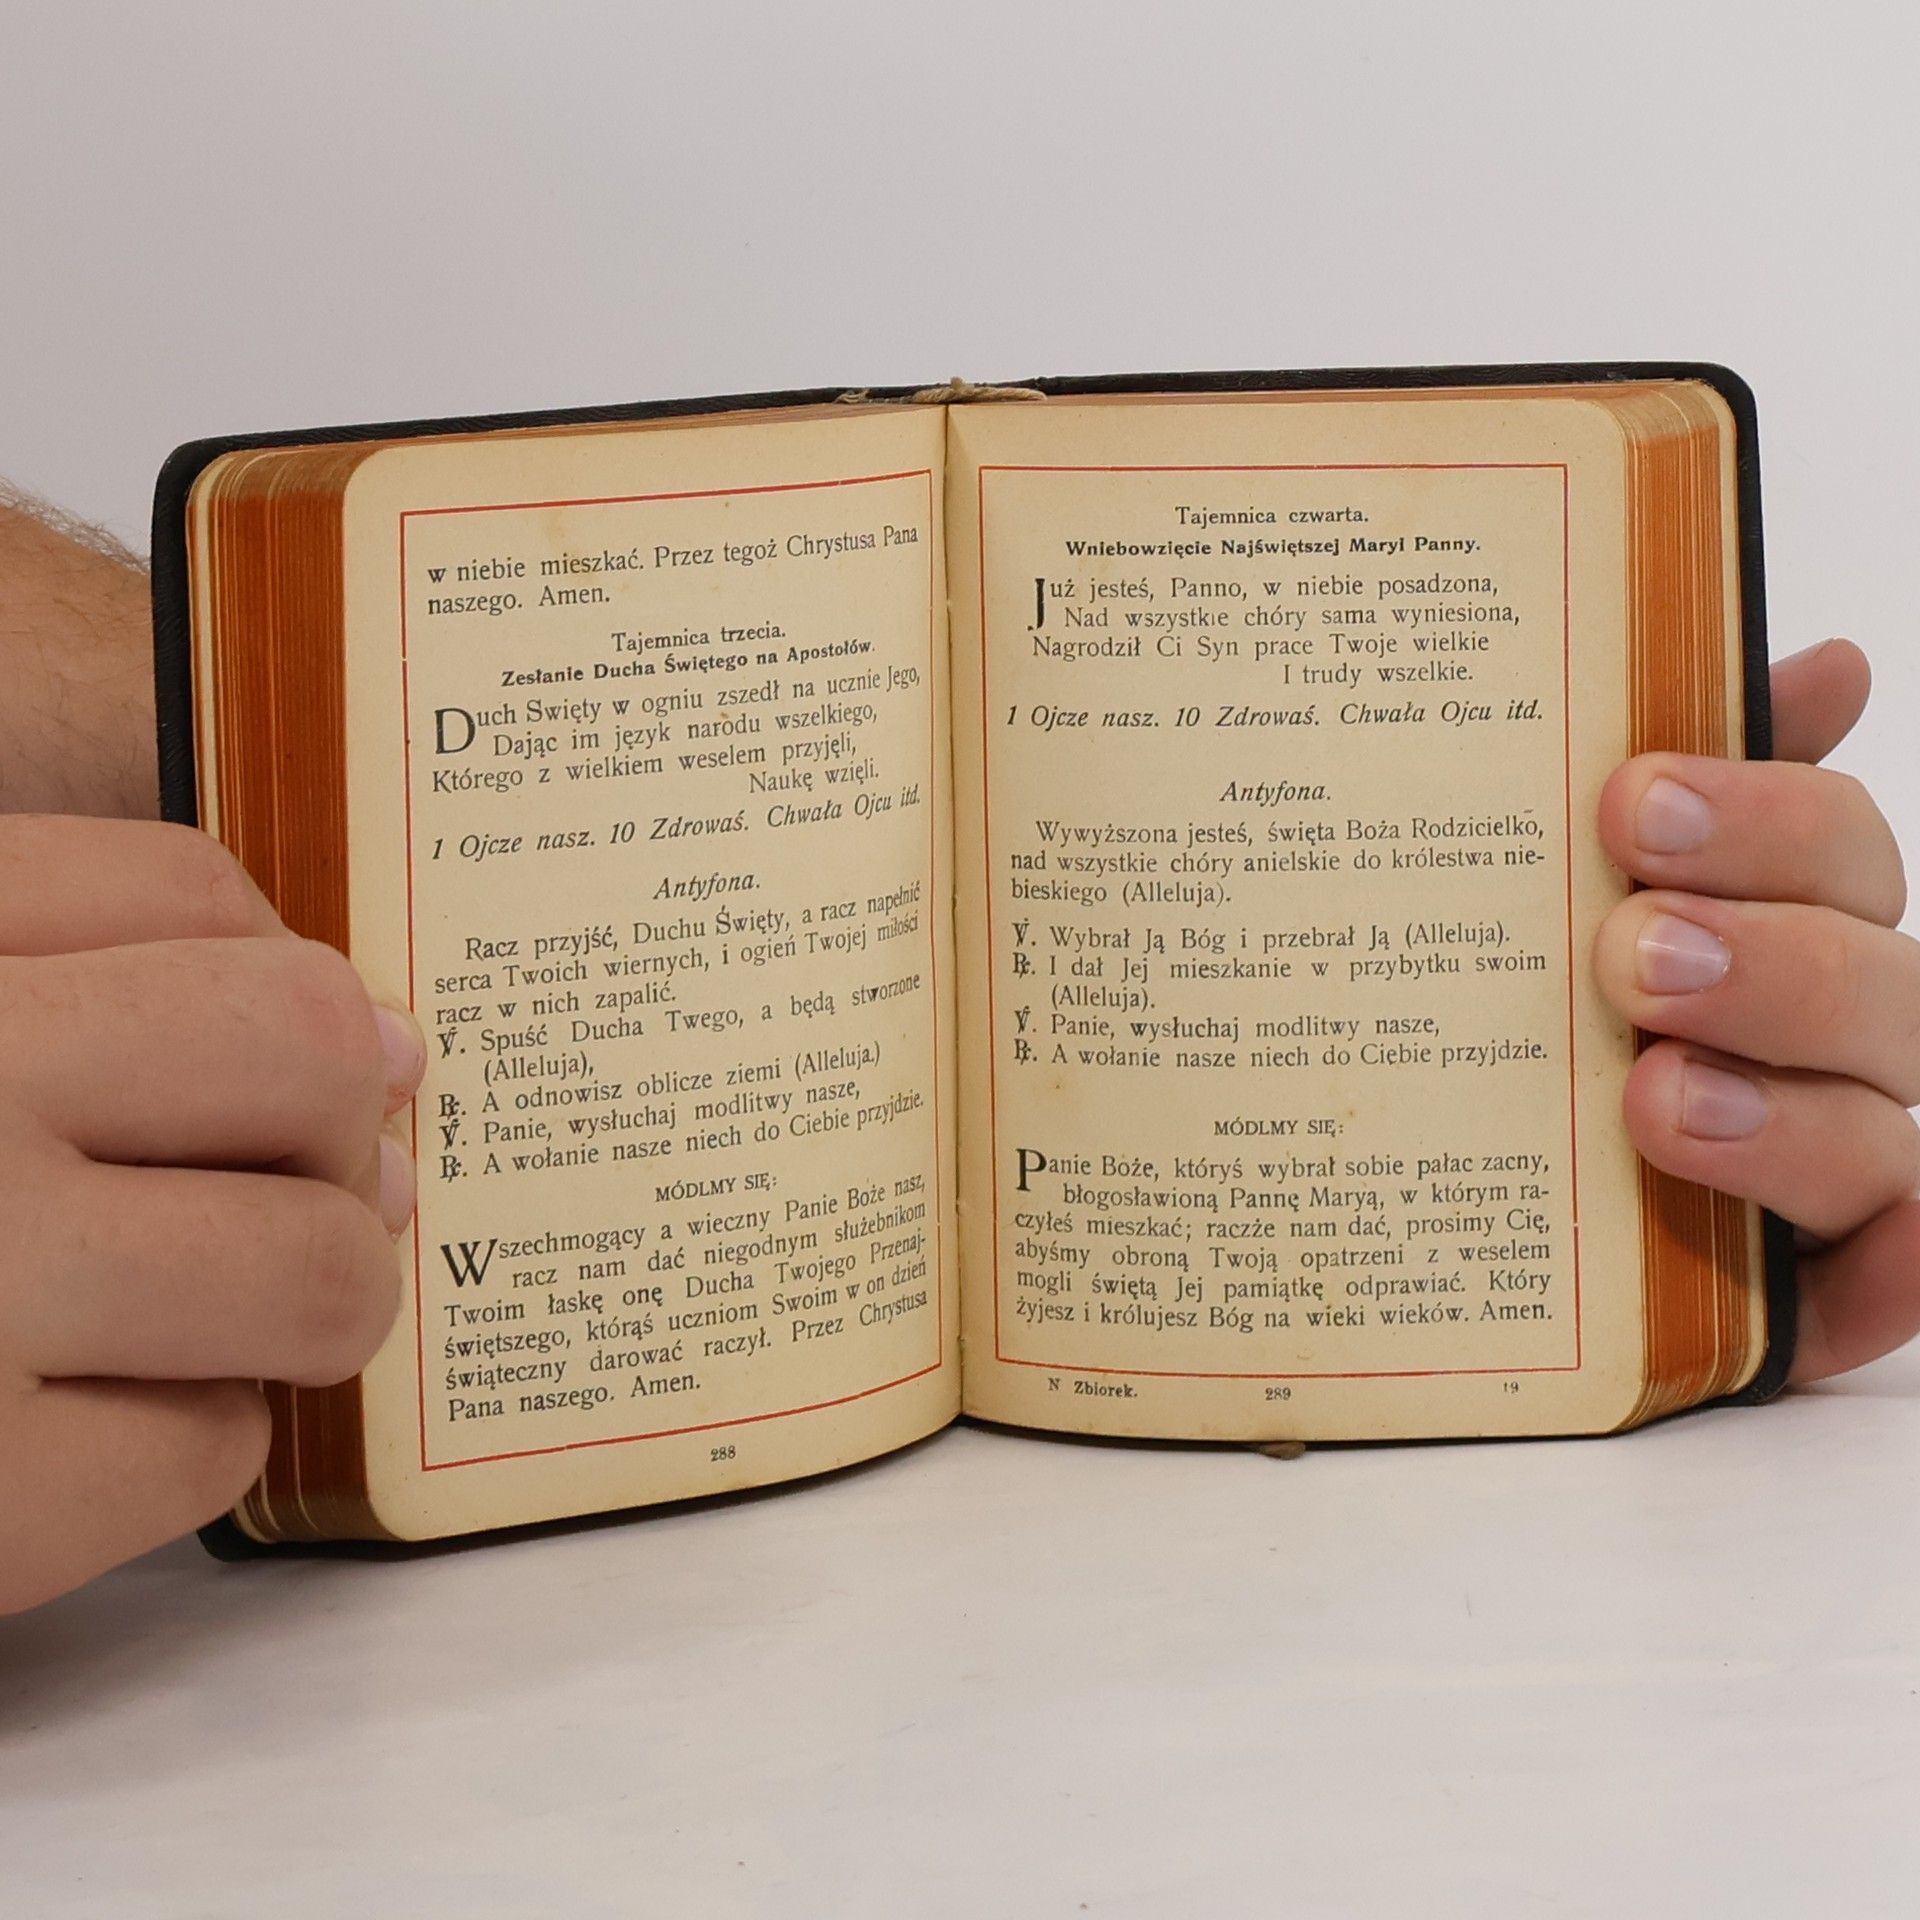 w niebie mieszkać. Przez tegoż Chrystusa Pana
naszego. Amen.
Tajemnica trzecia.
Zesłanie Ducha Świętego na Apostołów.
Duch Swięty w ogniu zszedł na ucznie Jego,
Dając im język narodu wszelkiego,
Którego z wielkiem weselem przyjęli,
Naukę wzięli.
1 Ojcze nasz. 10 Zdrowaś. Chwała Ojcu itd.
Antyfona.
Racz przyjść, Duchu Święty, a racz napełnić
serca Twoich wiernych, i ogień Twojej miłości
racz w nich zapalić.
℣. Spuść Ducha Twego, a będą stworzone
(Alleluja),
℟. A odnowisz oblicze ziemi (Alleluja.)
℣. Panie, wysłuchaj modlitwy nasze,
℟. A wołanie nasze niech do Ciebie przyjdzie.
MÓDLMY SIĘ:
Wszechmogący a wieczny Panie Boże nasz,
racz nam dać niegodnym służebnikom
Twoim łaskę onę Ducha Twojego Przenaj-
świętszego, którąś uczniom Swoim w on dzień
świąteczny darować raczył. Przez Chrystusa
Pana naszego. Amen.
288
Tajemnica czwarta.
Wniebowzięcie Najświętszej Maryi Panny.
Już jesteś, Panno, w niebie posadzona,
Nad wszystkie chóry sama wyniesiona,
Nagrodził Ci Syn prace Twoje wielkie
I trudy wszelkie.
1 Ojcze nasz. 10 Zdrowaś. Chwała Ojcu itd.
Antyfona.
Wywyższona jesteś, święta Boża Rodzicielko,
nad wszystkie chóry anielskie do królestwa nie-
bieskiego (Alleluja).
℣. Wybrał Ją Bóg i przebrał Ją (Alleluja).
℟. I dał Jej mieszkanie w przybytku swoim
(Alleluja).
℣. Panie, wysłuchaj modlitwy nasze,
℟. A wołanie nasze niech do Ciebie przyjdzie.
MÓDLMY SIĘ:
Panie Boże, któryś wybrał sobie pałac zacny,
błogosławioną Pannę Maryą, w którym ra-
czyłeś mieszkać; raczże nam dać, prosimy Cię,
abyśmy obroną Twoją opatrzeni z weselem
mogli świętą Jej pamiątkę odprawiać. Który
żyjesz i królujesz Bóg na wieki wieków. Amen.
N Zbiorek. 289 19